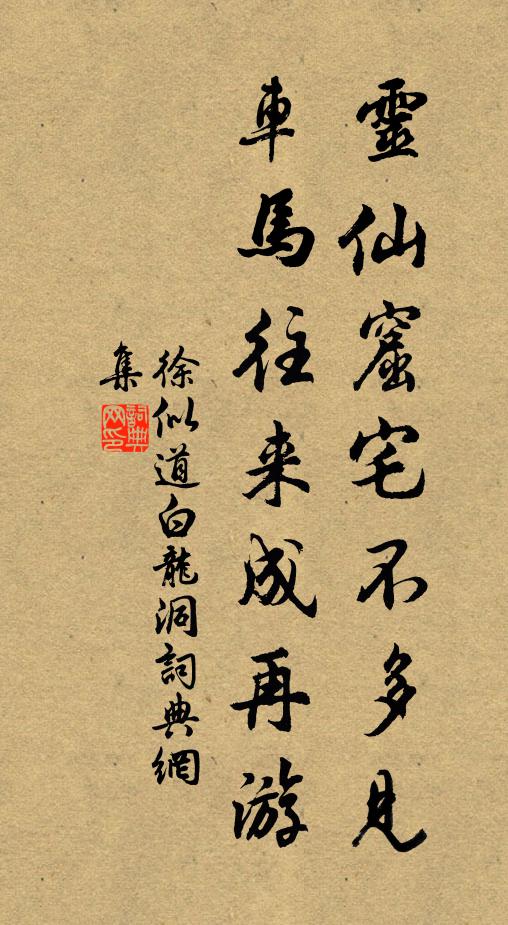 靈仙窟宅不多見
車馬往来成再游
徐似道白龍洞詞典網
集
詞典网印